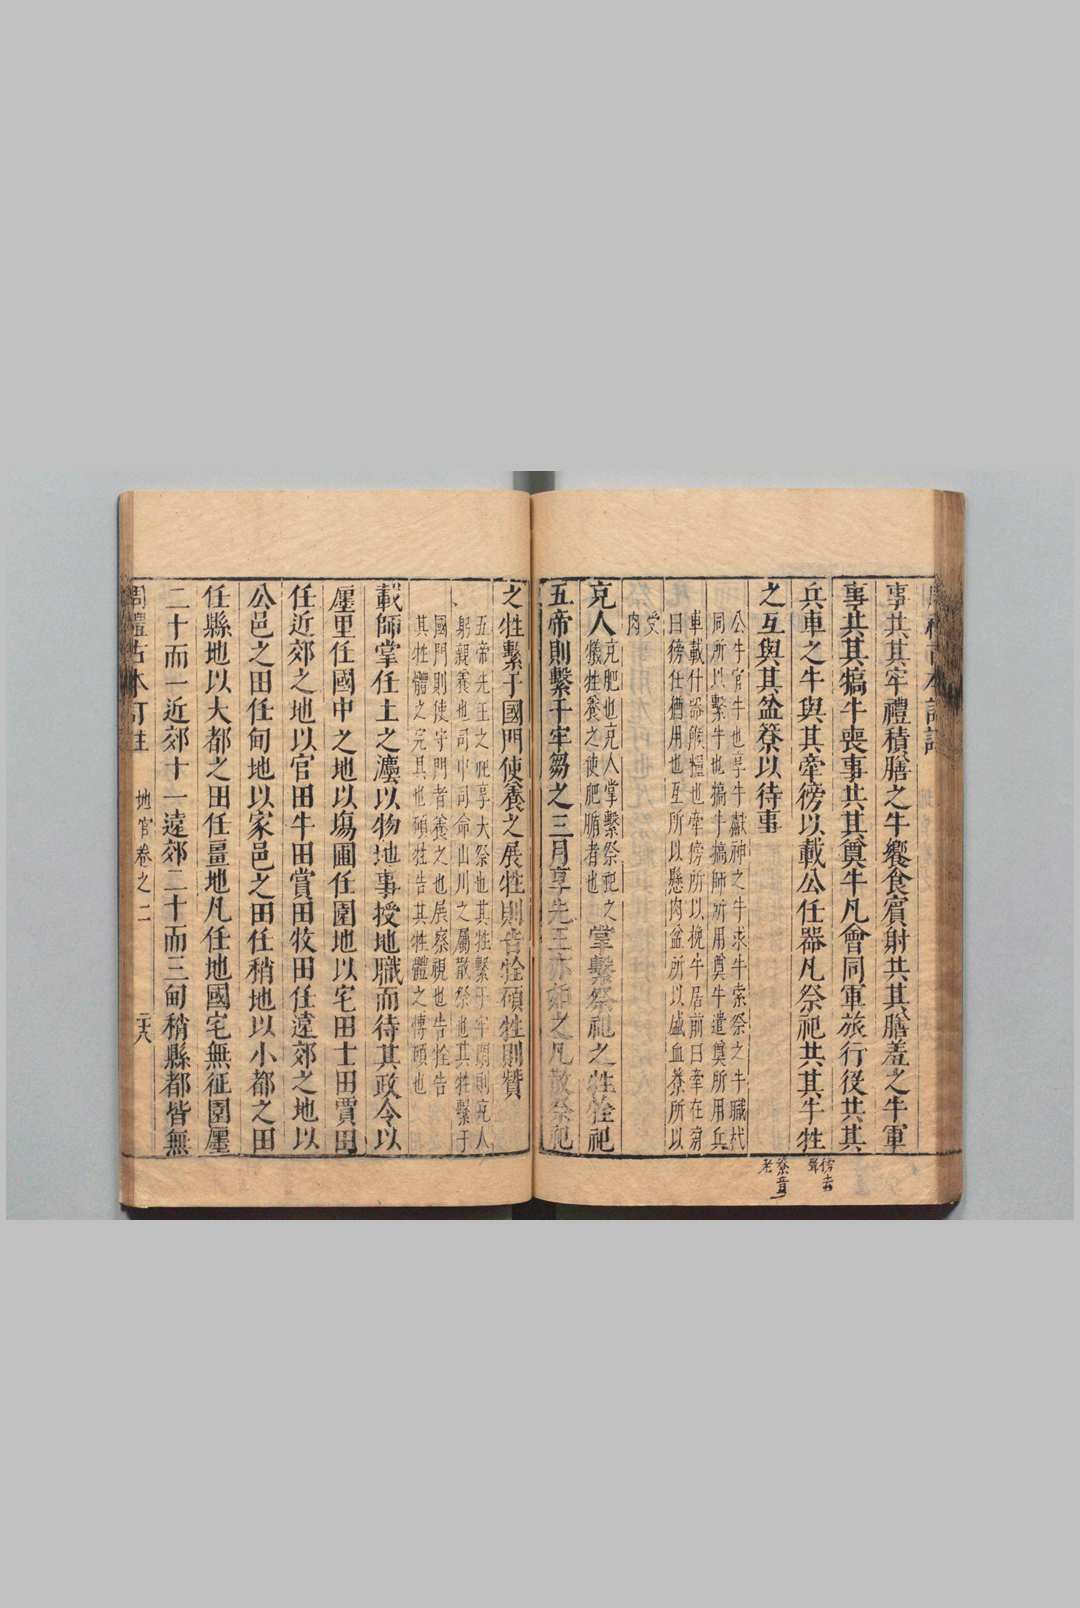 事共其牢禮積膳之牛饗食賓射共其膳羞之牛軍
事共其犒牛喪事共其奠牛凡會同軍旅行役共其
兵車之牛與其牽徬以載公任器凡祭祀共其牛牲
之互與其盆簝以待事
公牛官牛也享牛獻神之牛求牛索祭之牛職杙
同所以繫牛也犒牛犒師所用奠牛遣奠所用兵
車載什器餱糧也牽傍所以挽牛居前曰牽在旁
曰徬任猶用也互所以懸肉盆所以盛血簝所以
受
肉
充人
充肥也充人掌繫祭祀之
犧牲養之使肥腯者也
掌繫祭祀之牲牷祀
五帝則繫于牢芻之三月享先王亦如之凡散祭祀
之牲繫于國門使養之展牲則告牷碩牲則贊
五帝先王之祀享大祭也其牲繫于牢閑則充人
躬親養也司中司命山川之屬散祭也其牲繫于
國門則使守門者養之也展察視也告牷告
其牲體之完具也碩牲告其牲體之博碩也
載師掌任土之灋以物地事授地職而待其政令以
廛里任國中之地以場圃任園地以宅田士田賈田
任近郊之地以官田牛田賞田牧田任遠郊之地以
公邑之田任甸地以家邑之田任稍地以小都之田
任縣地以大都之田任畺地凡任地國宅無征園廛
二十而一近郊十一遠郊二十而三甸稍縣都皆無
周禮古本訂註 地官卷之二 二十八
徬去
聲
簝音
老